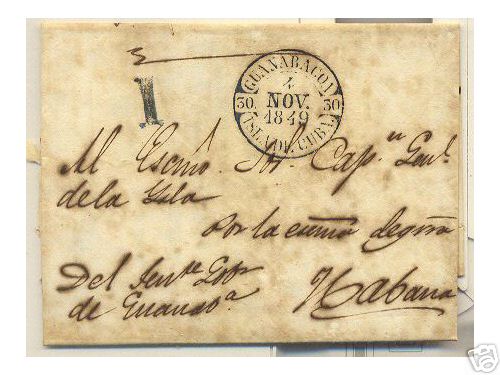 1
GUANABACOA
4
30. NOV. 30
1849
ISLA DE CUBA.
Al Escmo. Sor. Cap.n Gen.l
de la Ysla
Por la
Del Gob.r
de Guanab.a
Habana